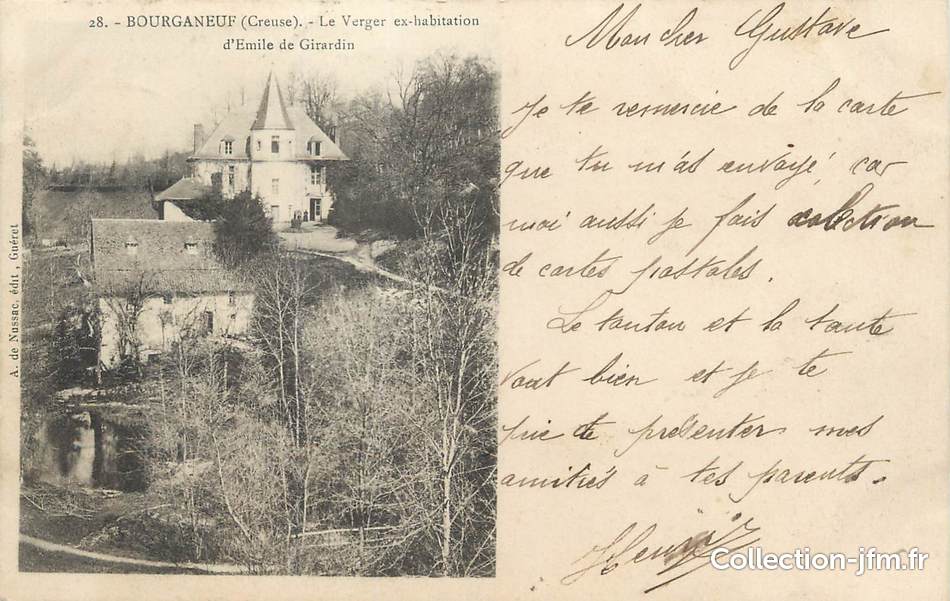 28. - BOURGANEUF (Creuse). - Le Verger ex-habitation
d'Emile de Girardin
A. de Nussac, édit, Guéret
Mon cher Gustave
Je te remercie de la carte
que tu m'as envoyé, car
moi aussi je fais colection
de cartes postales.
Le tonton et la tante
vont bien et je te
prie de présenter mes
amitiés à tes parents.
Henri
Collection-jfm.fr